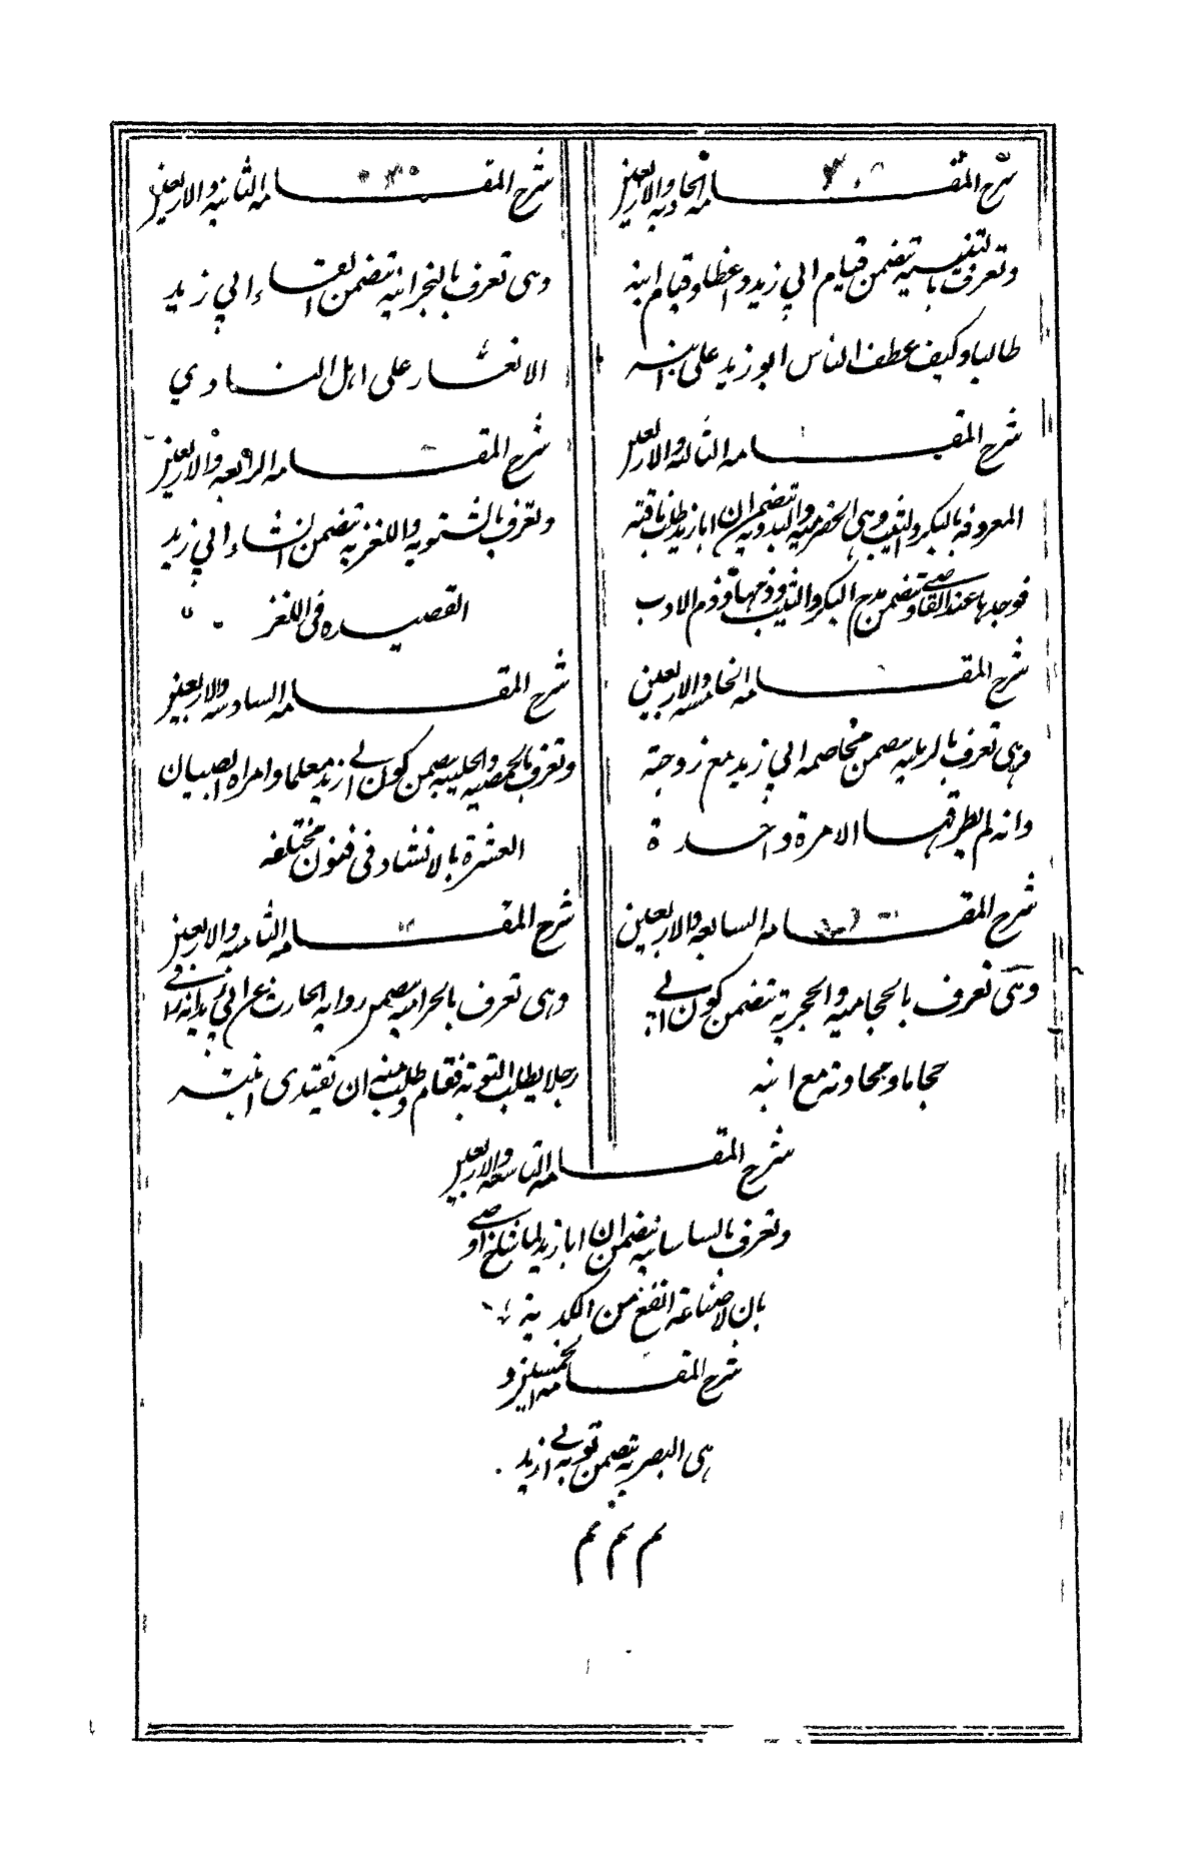 شرح المقامه الحاديه والاربعين
وتعرف بالتنيسيه تتضمن قيام ابي زيد واعظا وقيام ابنه
طالبا وكيف عطف الناس ابو زيد على ابنه
شرح المقامه الثالثه والاربعين
المعروفه بالبكر والثيب وهى الحضرميه والبدويه تتضمن ان ابا زيد طلب ناقته
فوجدها عند القاضى وتتضمن مدح البكر والثيب وذمهما وذم الادب
شرح المقامه الخامسه والاربعين
وهى تعرف بالرمليه تتضمن مخاصمه ابي زيد مع زوجته
وانه لم يطرقها الا مرة واحدة
شرح المقامه السابعه والاربعين
وهى تعرف بالحجاميه والحجريه تتضمن كون ابى زيد
حجاما ومحاوته مع ابنه
شرح المقامه الثانيه والاربعين
وهى تعرف بالنجرانيه تتضمن القاء ابي زيد
الالغاز على اهل النادي
شرح المقامه الرابعه والاربعين
وتعرف بالشتويه واللغزيه تتضمن انشاء ابي زيد
القصيده فى اللغز
شرح المقامه السادسه والاربعين
وتعرف بالحمصيه والحلبيه تتضمن كون ابى زيد معلما وامراه الصبيان
العشرة بالانشاد فى فنون مختلفه
شرح المقامه الثامنه والاربعين
وهى تعرف بالحراميه تتضمن روايه الحارث عن ابي زيد انه راى
رجلا يطلب التوبة فقام وطلب منه ان يفتدى ابنته
شرح المقامه التاسعه والاربعين
وتعرف بالساسانيه تتضمن ان ابا زيد لما شاخ اوصى
بان لا صناعه انفع من الكديه
شرح المقامه الخمسين و
هى البصريه تتضمن توبه ابى زيد
م م م